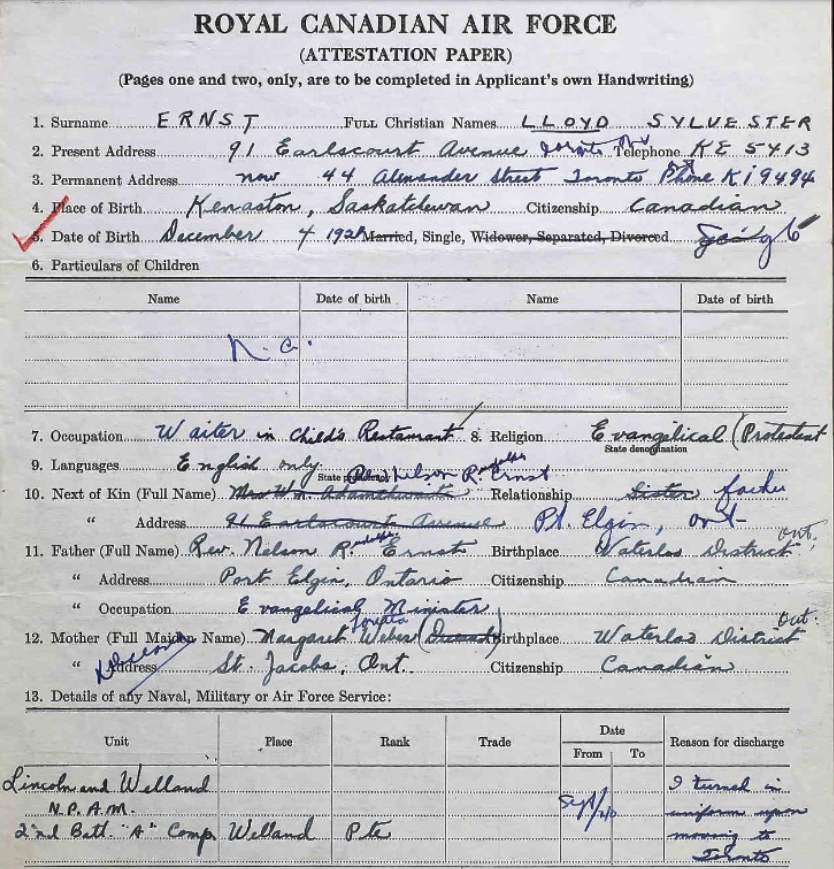 ROYAL CANADIAN AIR FORCE
(ATTESTATION PAPER)
(Pages one and two, only, are to be completed in Applicant's own Handwriting)
1. Surname ERNST Full Christian Names LLOYD SYLVESTER
2. Present Address 91 Earlscourt Avenue Toronto Ont Telephone KE 5413
3. Permanent Address now 44 Alexander Street Toronto Phone Ki 9494
4. Place of Birth Kenaston, Saskatchewan Citizenship Canadian
5. Date of Birth December 4 Married, Single, Widower, Separated, Divorced
6. Particulars of Children
Name Date of birth Name Date of birth
N. a.
7. Occupation Waiter in Child's Restaurant 8. Religion Evangelical (Protestant
State denomination
9. Languages English only
10. Next of Kin (Full Name) Nelson R. Ernst Relationship Sister father
" Address 91 Earlscourt Avenue Pt. Elgin, Ont
11. Father (Full Name) Rev. Nelson R. Ernst Birthplace Waterloo District Ont.
" Address Port Elgin, Ontario Citizenship Canadian
" Occupation Evangelical Minister
12. Mother (Full Maiden Name) Margaret Weber Birthplace Waterloo District Ont.
" Address St. Jacobs, Ont. Citizenship Canadian
13. Details of any Naval, Military or Air Force Service:
Unit Place Rank Trade Date From To Reason for discharge
Lincoln and Welland
N.P.A.M.
2nd Batt. "A" Comp Welland Pte Sept/40
I turned in
uniform upon
moving to
Toronto